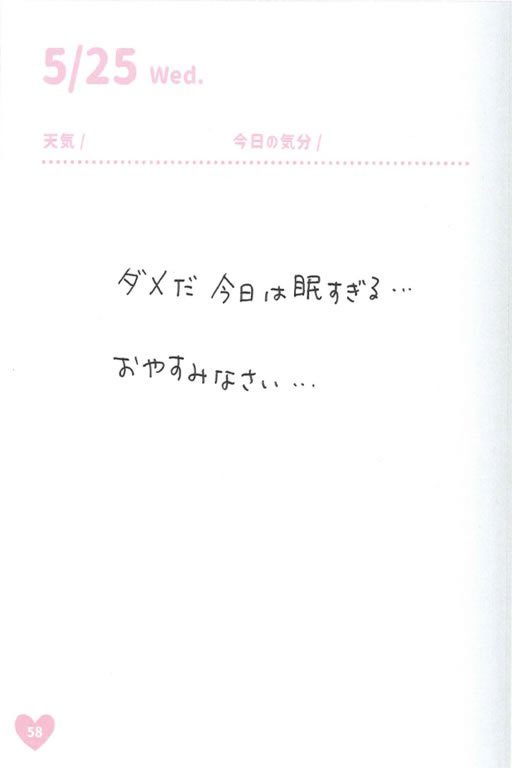 5/25 Wed.
天気 / 今日の気分 /
ダメだ 今日は眠すぎる…
おやすみなさい…
58